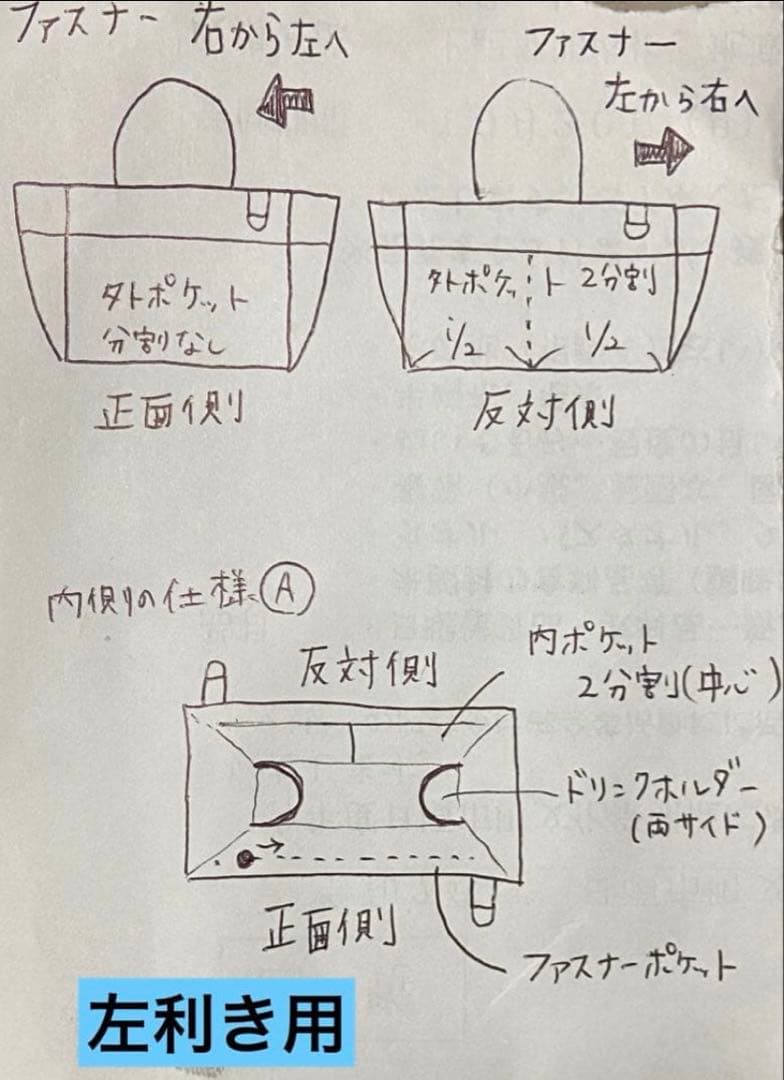 ファスナー 右から左へ
ファスナー
左から右へ
外ポケット
分割なし
正面側
外ポケット 2分割
1/2 1/2
反対側
内側の仕様 A
反対側
内ポケット
2分割(中心)
ドリンクホルダー
(両サイド)
正面側
ファスナーポケット
左利き用